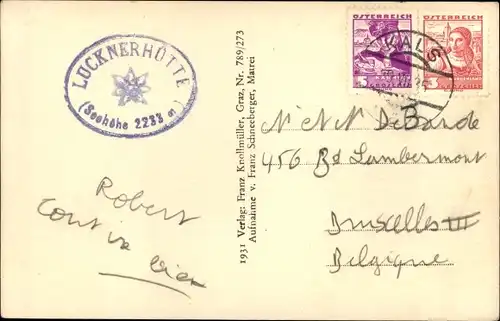 LUCKNERHÜTTE
(Seehöhe 2233 m)
ÖSTERREICH
ÖSTERREICH
KALS
1931 Verlag: Franz Knollmüller, Graz, Nr. 789/273
Aufnahme v. Franz Schneeberger, Matrei
456 Bd Lambermont
Bruxelles III
Belgique
Robert
Tout va bien